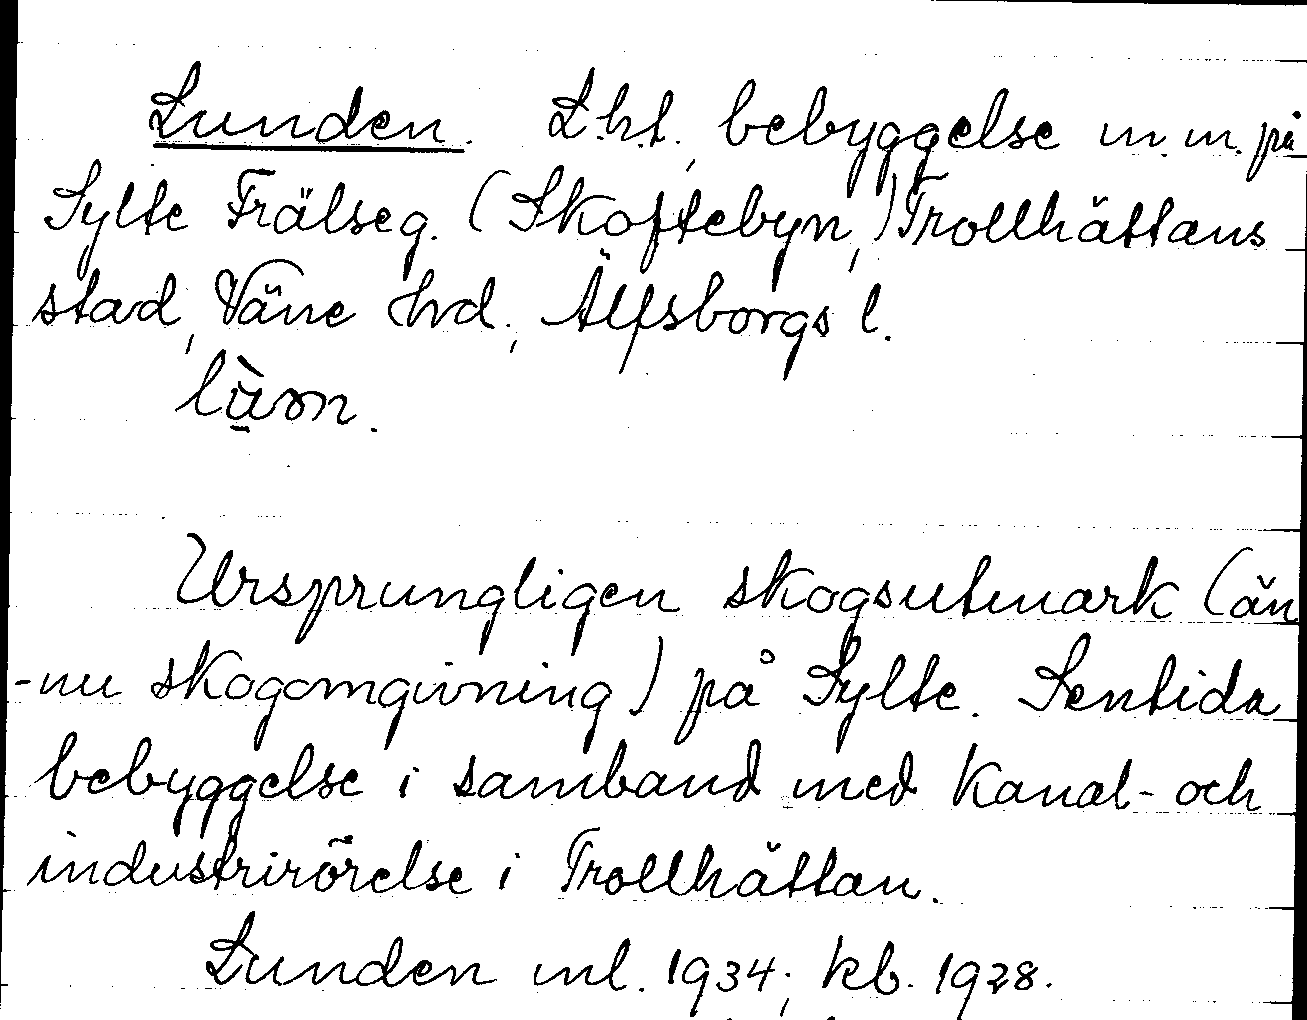 Lunden. Lht., bebyggelse m.m. på
Sylte Frälseg. (Skoftebyn,) Trollhättans
stad, Väne hd., Älfsborgs l.
Ursprungligen skogsutmark (än
-nu skogomgivning) på Sylte. Sentida
bebyggelse i samband med Kanal- och
industrirörelse i Trollhättan.
Lunden ml. 1934; kb. 1928.